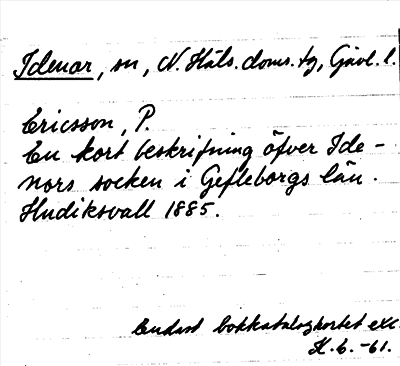 Idenor, sn, N. Häls. doms. tg, Gävl. l.
Ericsson, P.
En kort beskrifning öfver Ide-
nors socken i Gefleborgs län.
Hudiksvall 1885.
Endast bokkatalogkortet exc.
H. C. -61.